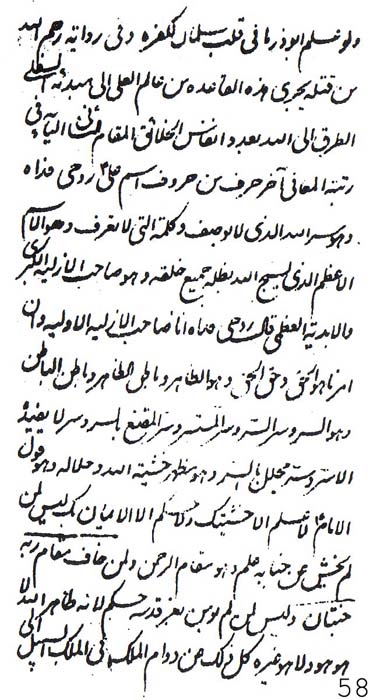 ولو علم ابوذر ما فی قلب سلمان لکفره و فی روایة رحم الله
من قتله یجری هذه القاعده من عالم العلی الی
الطرق الی الله بعدد انفاس الخلائق المقام
رتبة المعانی آخر حرف من حروف اسم علی روحی فداه
وهو سر الله الذی لا یوصف و کلمة التی لا تعرف و هو الاسم
الاعظم الذی یسبح الله بظله جمیع خلقه و هو صاحب الازلیة الکبری
والابدیة العظمی قال روحی فداه انا صاحب الازلیة الاولیة و ان
امرنا هو الحق و حق الحق و هو الظاهر و باطن الظاهر و باطن الباطن
و هو السر و سر السر و سر المستسر و سر المقنع بالسر و سر لا یفیده
الا سر و سر مجلل بالسر و هو مظهر خشیة الله و جلاله و هو قول
الامام لا علم الا خشیتک و لا حکم الا الایمان بک لیس لمن
لم یخش عن جنابه علم و هو مقام الرحمن و لمن خاف مقام ربه
جنتان و لیس لمن لم یومن بعز قدرته حکم لانه ظاهر الله لا
هو هو و لا هو غیره کل ذلک من دوام الملک فی الملک
58